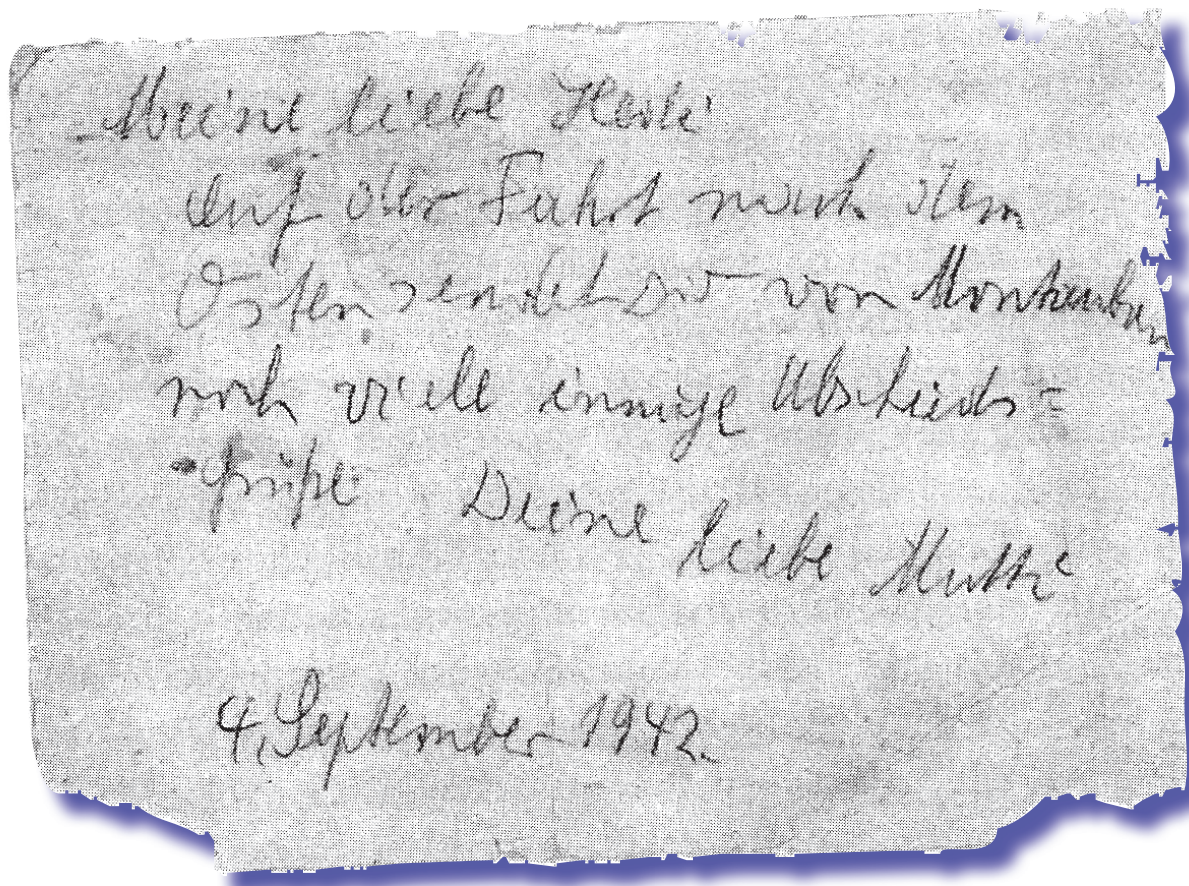 Meine liebe Herti
Auf der Fahrt nach dem
Osten sendet Dir von Montauban
noch viele innige Abschieds=
grüße Deine liebe Mutti
4. September 1942.